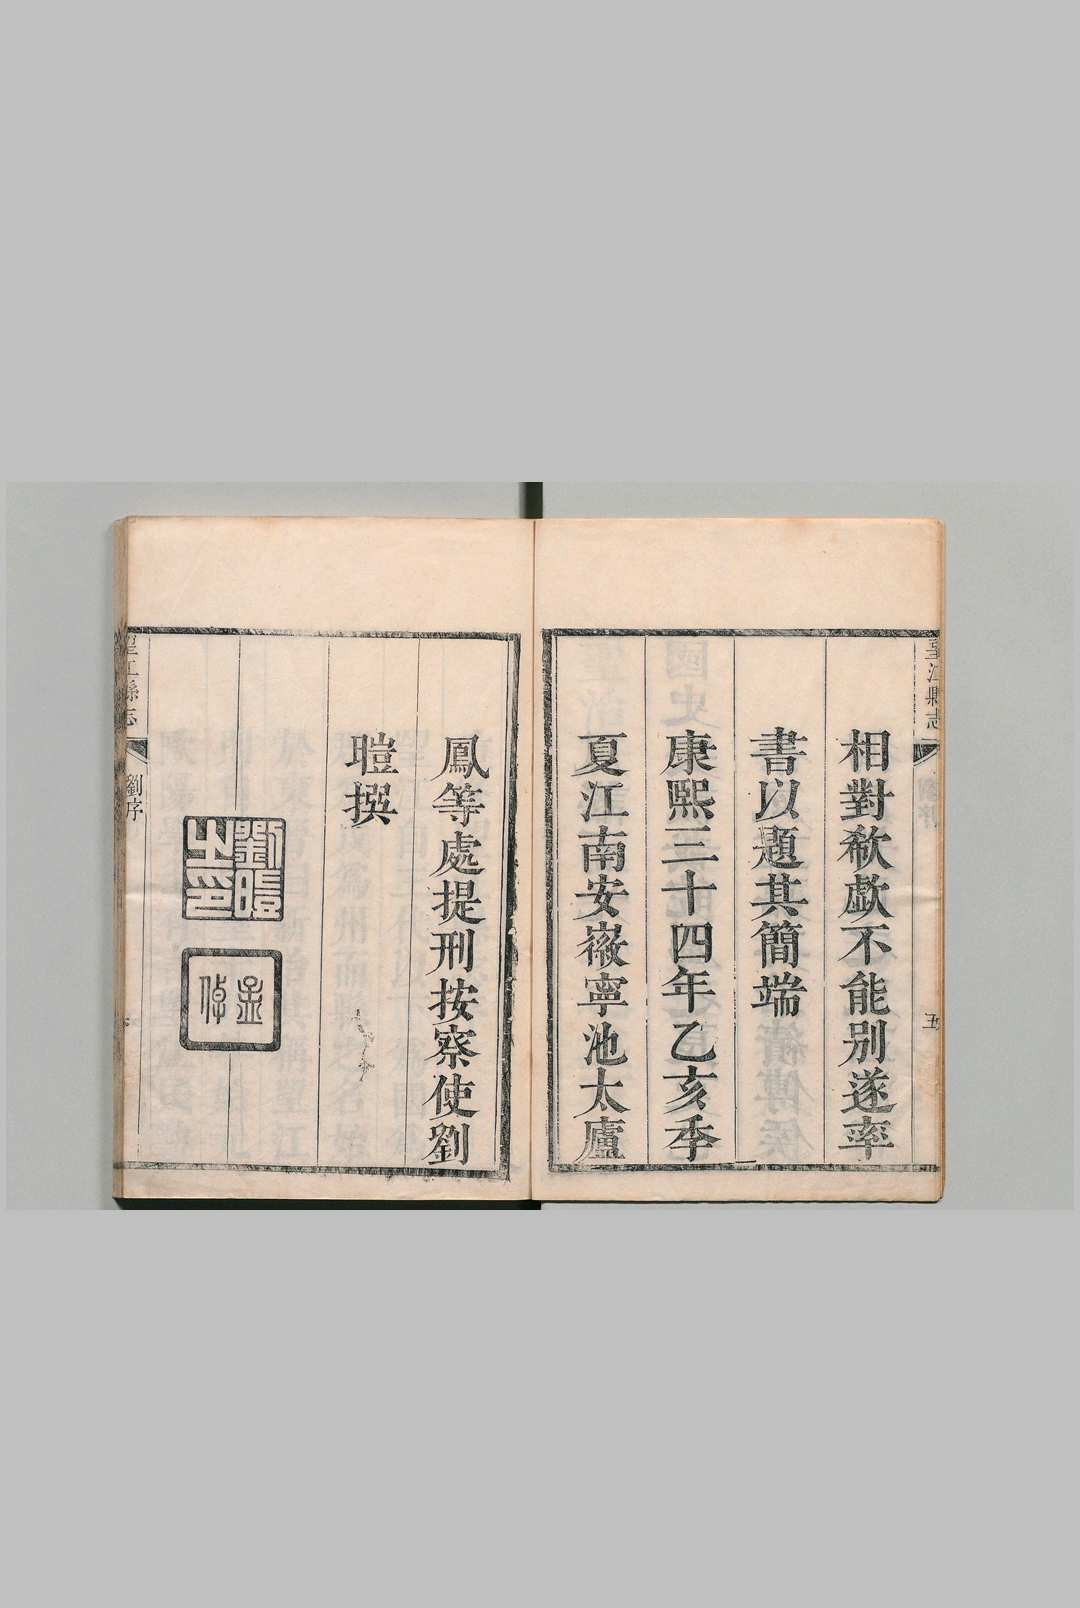 望江縣志
五
相對欷歔不能別遂率
書以題其簡端
康熙三十四年乙亥季
夏江南安徽寧池太廬
鳳等處提刑按察使劉
暟撰
劉暟之印
望江縣志
劉序